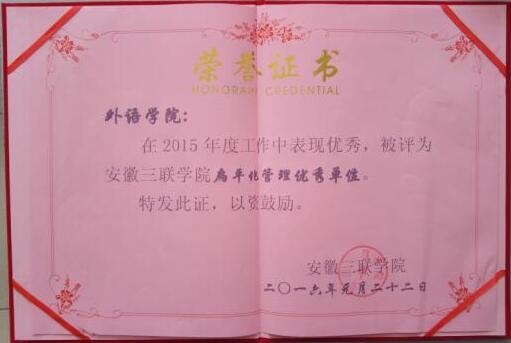 荣誉证书
HONORARY CREDENTIAL
外语学院：
在2015年度工作中表现优秀，被评为
安徽三联学院扁平化管理优秀单位。
特发此证，以资鼓励。
安徽三联学院
二〇一六年元月二十二日